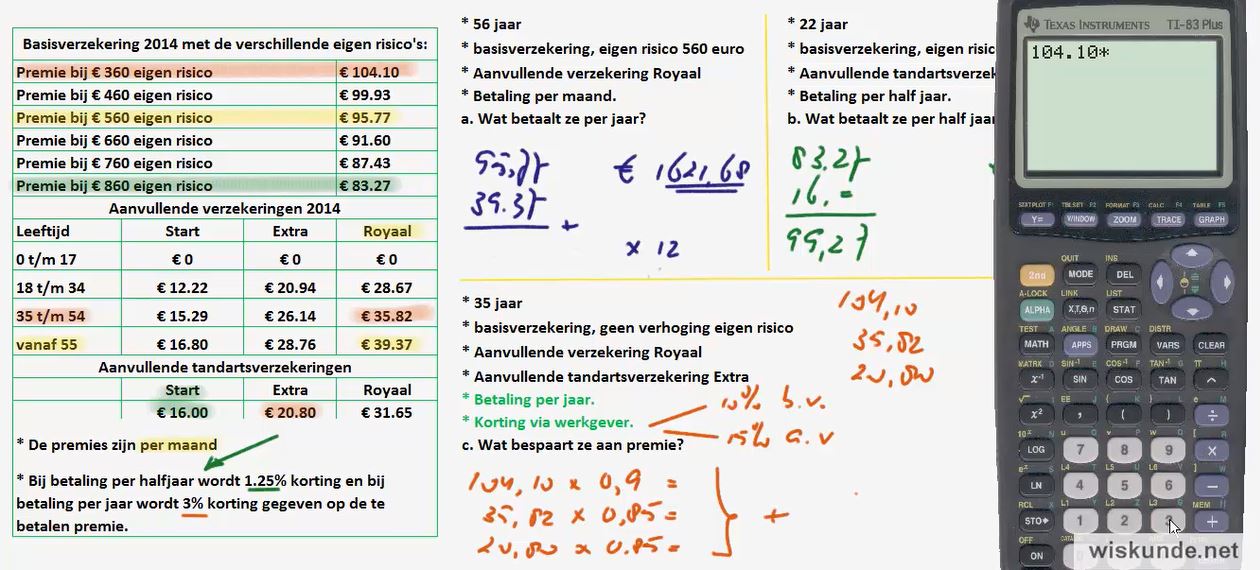 Basisverzekering 2014 met de verschillende eigen risico's:
Premie bij € 360 eigen risico € 104.10
Premie bij € 460 eigen risico € 99.93
Premie bij € 560 eigen risico € 95.77
Premie bij € 660 eigen risico € 91.60
Premie bij € 760 eigen risico € 87.43
Premie bij € 860 eigen risico € 83.27
Aanvullende verzekeringen 2014
Leeftijd Start Extra Royaal
0 t/m 17 € 0 € 0 € 0
18 t/m 34 € 12.22 € 20.94 € 28.67
35 t/m 54 € 15.29 € 26.14 € 35.82
vanaf 55 € 16.80 € 28.76 € 39.37
Aanvullende tandartsverzekeringen
Start Extra Royaal
€ 16.00 € 20.80 € 31.65
* De premies zijn per maand
* Bij betaling per halfjaar wordt 1.25% korting en bij
betaling per jaar wordt 3% korting gegeven op de te
betalen premie.
* 56 jaar
* basisverzekering, eigen risico 560 euro
* Aanvullende verzekering Royaal
* Betaling per maand.
a. Wat betaalt ze per jaar?
95,77
39.37 +
€ 1621,68
x 12
* 22 jaar
* basisverzekering, eigen risic
* Aanvullende tandartsverzek
* Betaling per half jaar.
b. Wat betaalt ze per half jaar
83.27
16,=
99,27
* 35 jaar
* basisverzekering, geen verhoging eigen risico
* Aanvullende verzekering Royaal
* Aanvullende tandartsverzekering Extra
* Betaling per jaar.
* Korting via werkgever.
c. Wat bespaart ze aan premie?
104,10
35,82
20,80
10% b.v.
15% a.v
104,10 x 0,9 =
35,82 x 0,85 =
20,80 x 0.85 =
+
TEXAS INSTRUMENTS TI-83 Plus
104.10*
STATPLOT F1 TBLSET F2 FORMAT F3 CALC F4 TABLE F5
Y= WINDOW ZOOM TRACE GRAPH
QUIT INS
2nd MODE DEL
A-LOCK LINK LIST
ALPHA X,T,θ,n STAT
TEST A ANGLE B DRAW C DISTR
MATH APPS PRGM VARS CLEAR
MATRX D SIN⁻¹ E COS⁻¹ F TAN⁻¹ G π H
x⁻¹ SIN COS TAN ^
x² , ( ) ÷
LOG 7 8 9 X
LN 4 5 6 −
RCL X L1 Y L2 Z L3 MEM
STO 1 2 3 +
OFF
ON
wiskunde.net